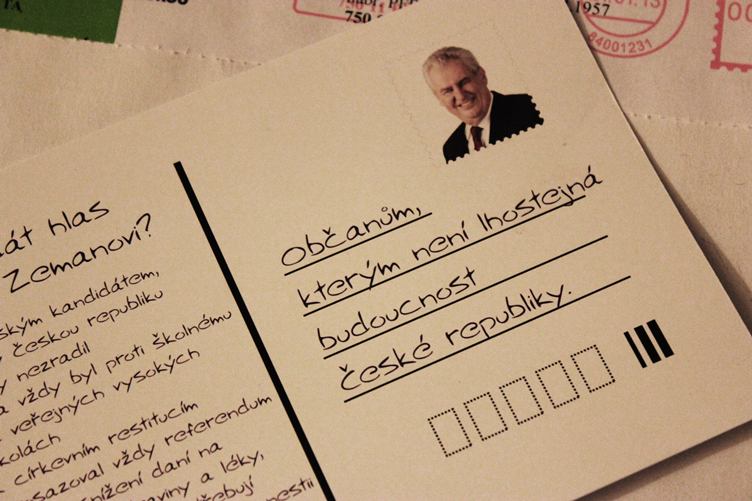 750
1957
84001231
dát hlas
Zemanovi?
ským kandidátem,
českou republiku
nezradil
a vždy byl proti školnému
veřejných vysokých
kolách
církevním restitucím
sazoval vždy referendum
snížení daní na
aviny a léky,
Občanům,
kterým není lhostejná
budoucnost
české republiky.